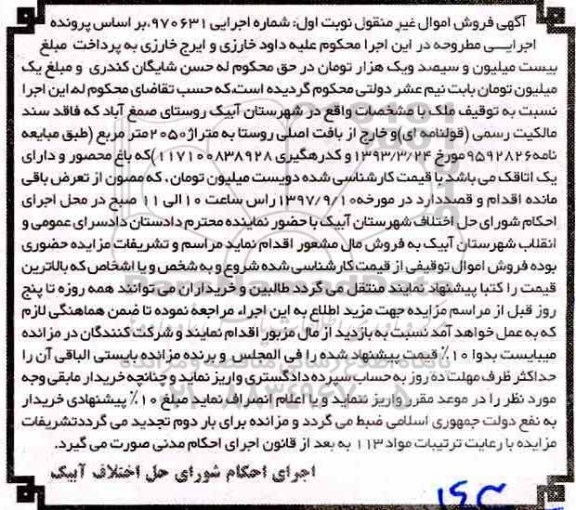 آگهی فروش اموال غیر منقول نوبت اول: شماره اجرایی ۹۷۰۶۳۱،بر اساس پرونده
اجرایی مطروحه در این اجرا محکوم علیه داود خارزی و ایرج خارزی به پرداخت مبلغ
بیست میلیون و سیصد ویک هزار تومان در حق محکوم له حسن شایگان کندری و مبلغ یک
میلیون تومان بابت نیم عشر دولتی محکوم گردیده است،که حسب تقاضای محکوم له،این اجرا
نسبت به توقیف ملک با مشخصات واقع در شهرستان آبیک روستای صمغ آباد که فاقد سند
مالکیت رسمی (قولنامه ای)و خارج از بافت اصلی روستا به متراژ ۲۰۵۰متر مربع (طبق مبایعه
نامه۹۵۹۲۸۲۶مورخ ۱۳۹۳/۳/۲۴ و کدرهگیری ۱۱۷۱۰۰۸۳۸۹۲۸)که باغ محصور و دارای
یک اتاقک می باشد با قیمت کارشناسی شده دویست میلیون تومان، که مصون از تعرض باقی
مانده اقدام و قصددارد در مورخه۱۳۹۷/۹/۱۰ راس ساعت ۱۰ الی ۱۱ صبح در محل اجرای
احکام شورای حل اختلاف شهرستان آبیک با حضور نماینده محترم دادستان دادسرای عمومی و
انقلاب شهرستان آبیک به فروش مال مشعور اقدام نماید مراسم و تشریفات مزایده حضوری
بوده فروش اموال توقیفی از قیمت کارشناسی شده شروع و به شخص و یا اشخاص که بالاترین
قیمت را کتبا پیشنهاد نمایند منتقل می گردد طالبین و خریداران می توانند همه روزه تا پنج
روز قبل از مراسم مزایده جهت مزید اطلاع به این اجراء مراجعه نموده تا ضمن هماهنگی لازم
که به عمل خواهد آمد نسبت به بازدید از مال مزبور اقدام نمایند و شرکت کنندگان در مزایده
میبایست بدوا ۱۰٪ قیمت پیشنهاد شده را فی المجلس و برنده مزایده بایستی الباقی آن را
حداکثر ظرف مهلت ده روز به حساب سپرده دادگستری واریز نماید و چنانچه خریدار مابقی وجه
مورد نظر را در موعد مقرر واریز ننماید ویا اعلام انصراف نماید مبلغ ۱۰٪ پیشنهادی خریدار
به نفع دولت جمهوری اسلامی ضبط می گردد و مزایده برای بار دوم تجدید می گرددتشریفات
مزایده با رعایت ترتیبات مواد ۱۱۳ به بعد از قانون اجرای احکام مدنی صورت می گیرد.
اجرای احکام شورای حل اختلاف آبیک